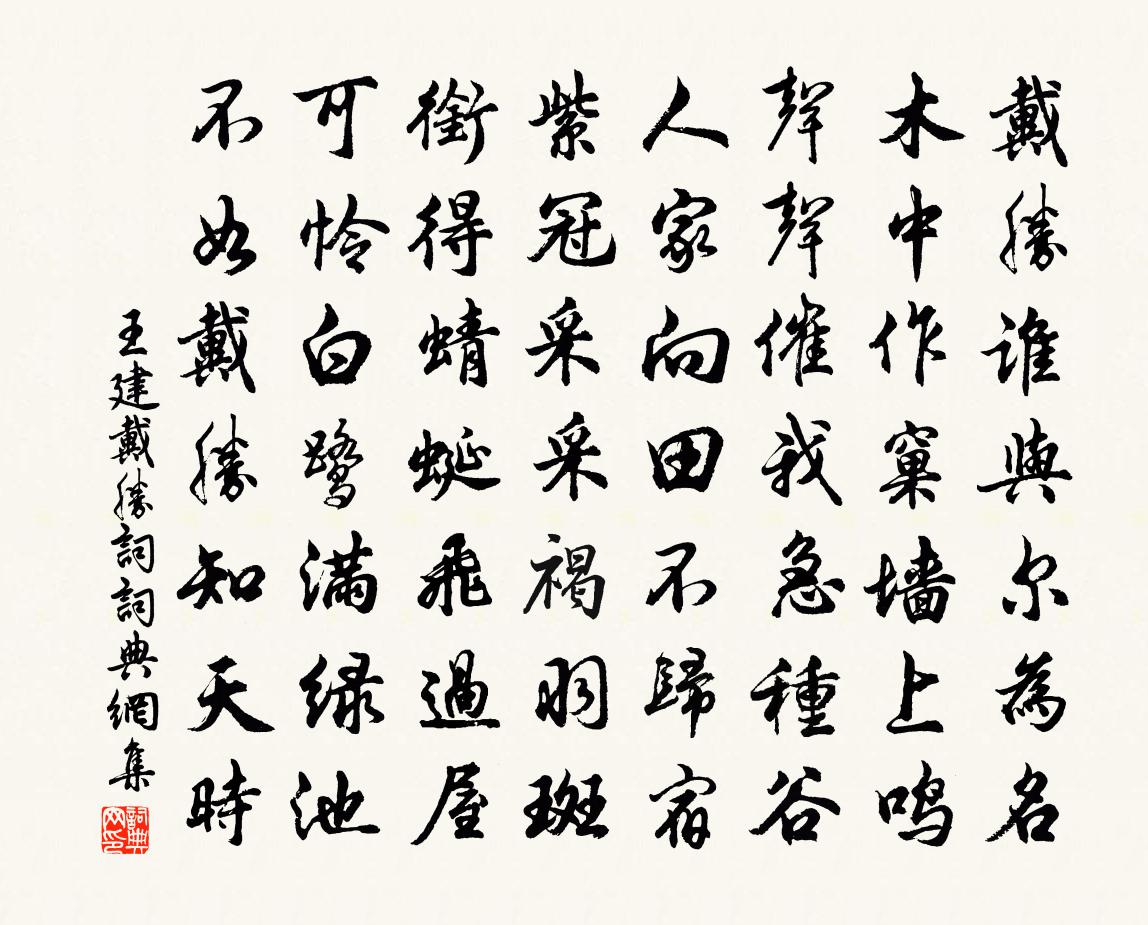 戴勝誰與尔為名
木中作窠墙上鸣
聲聲催我急種谷
人家向田不歸宿
紫冠采采褐羽斑
銜得蜻蜓飛過屋
可怜白鹭满绿池
不如戴勝知天時
王建戴勝詞詞典網集
詞典
网印